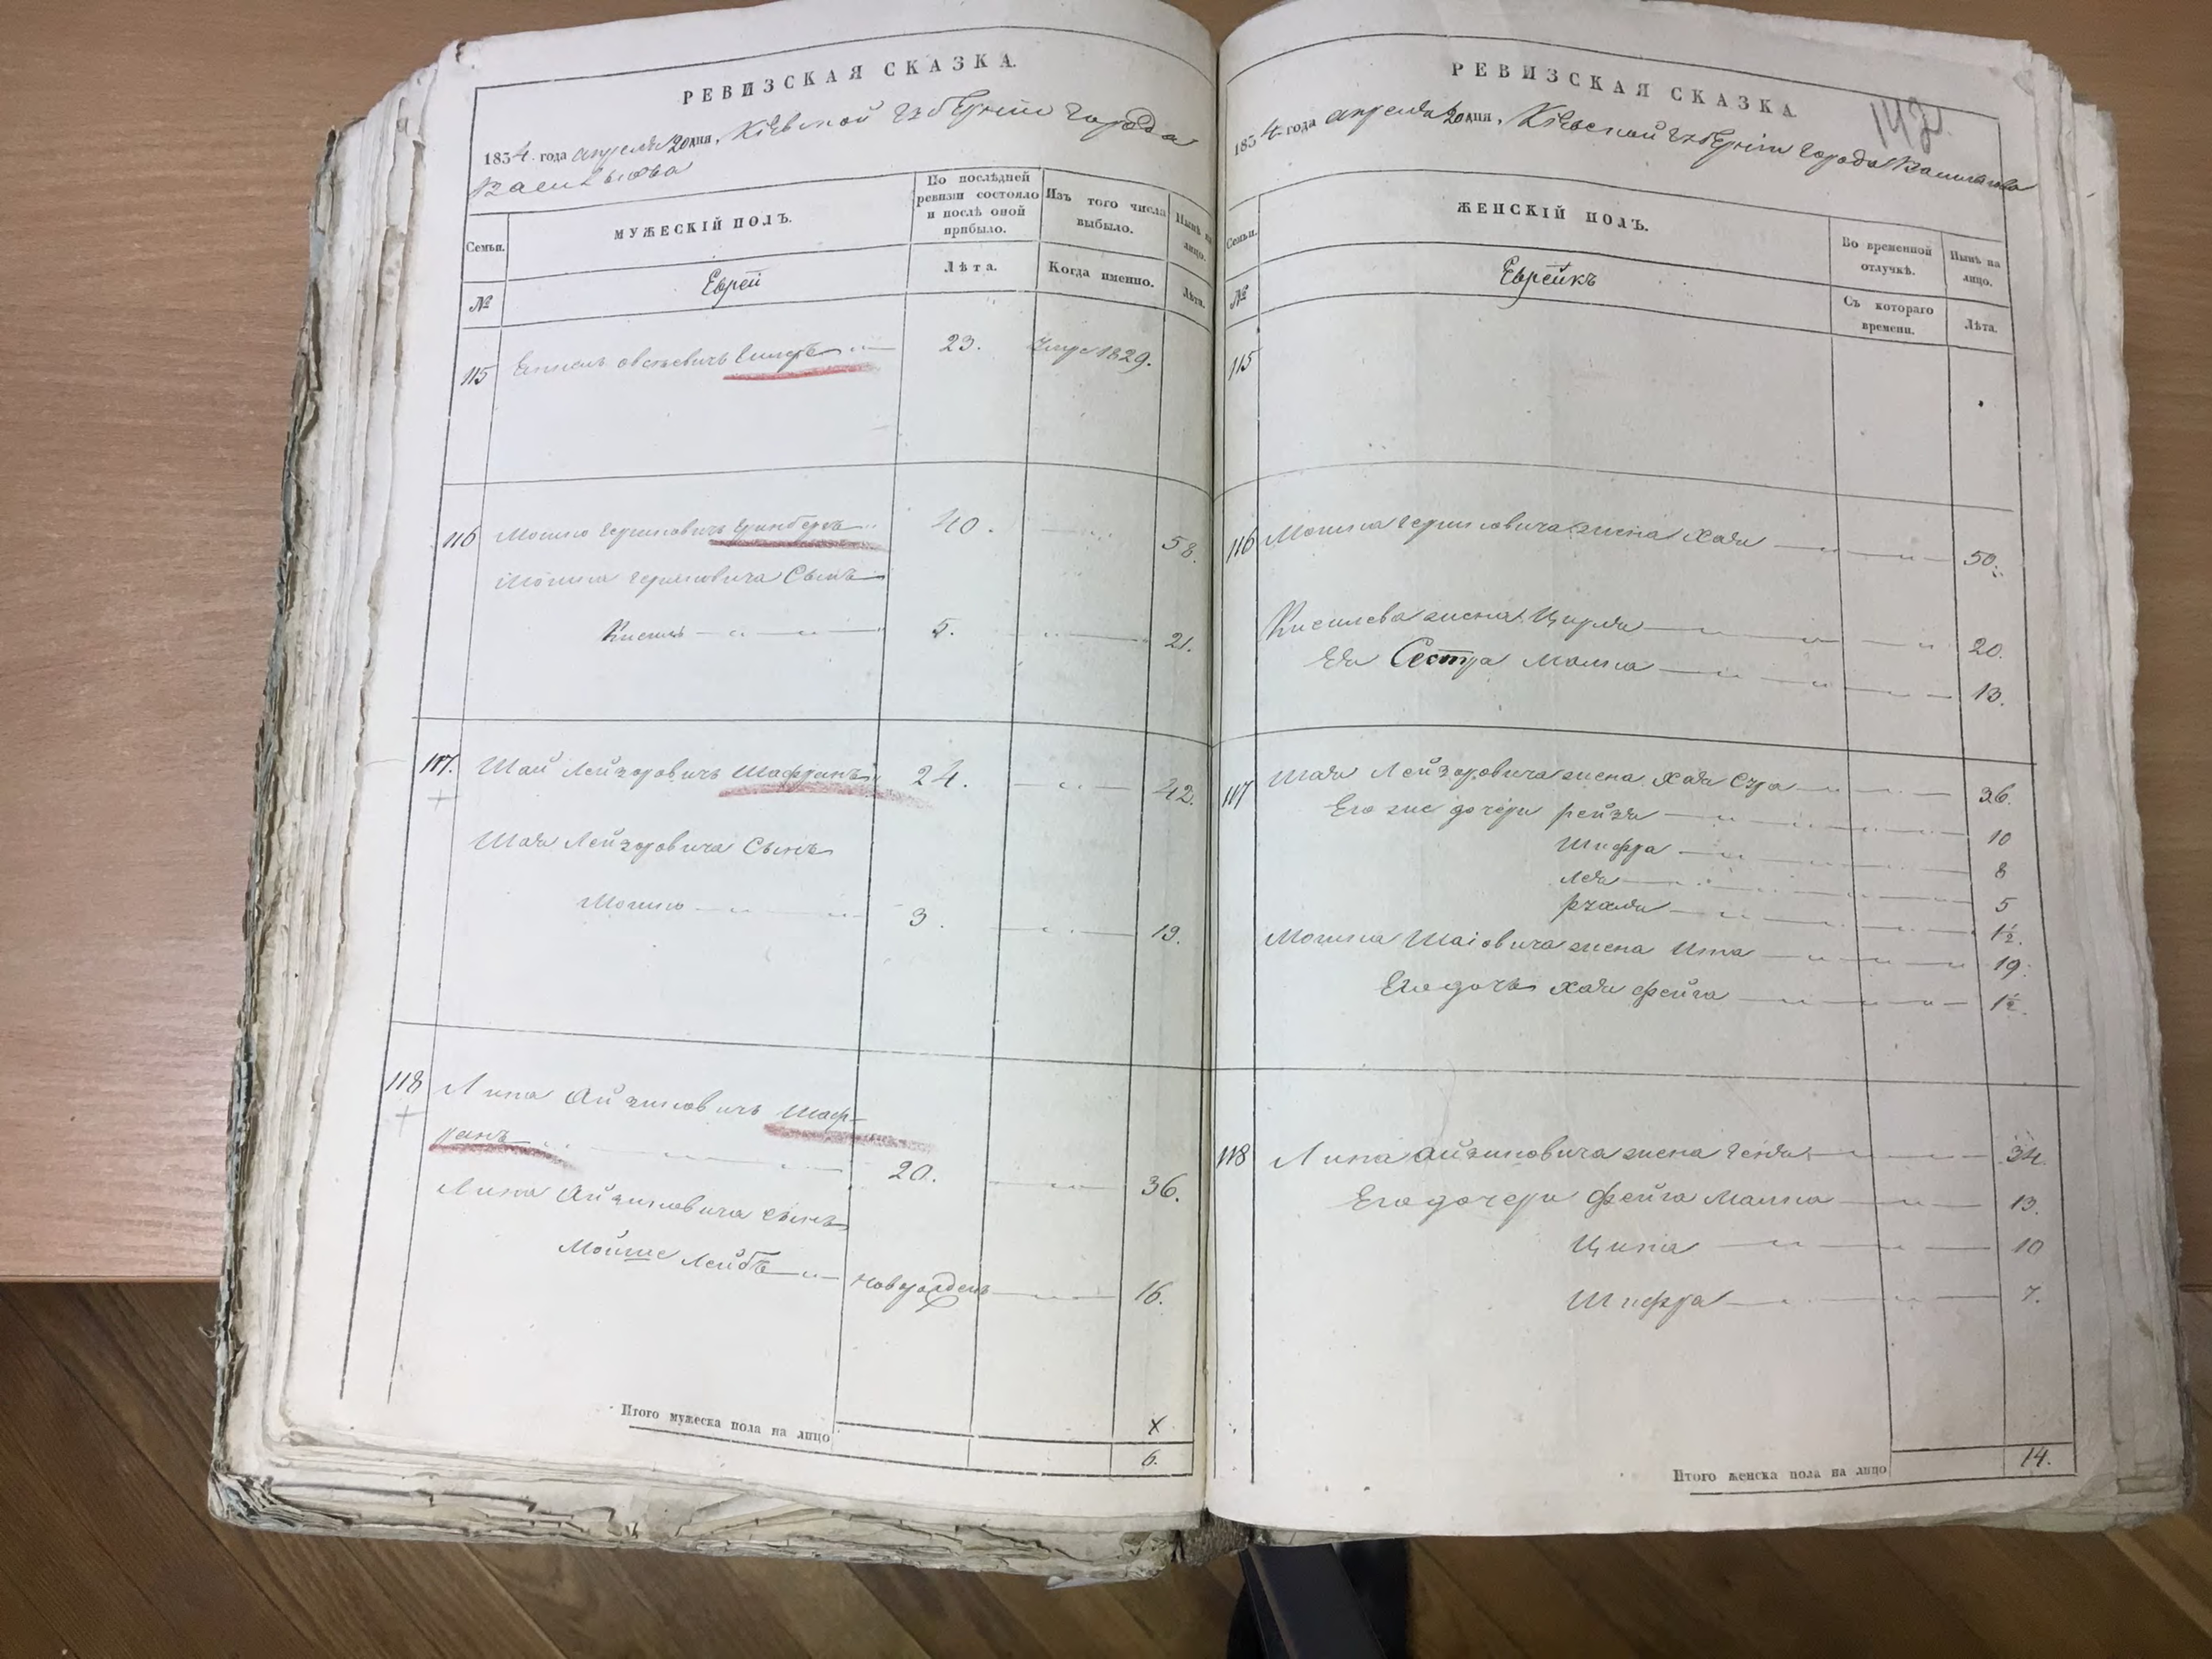 РЕВИЗСКАЯ СКАЗКА.
1834. года апреля 20 дня, Кіевской губерніи города
Василькова
Семьи.
МУЖЕСКІЙ ПОЛЪ.
По послѣдней ревизіи состояло и послѣ оной прибыло.
Изъ того числа выбыло.
Нынѣ на лицо.
№
Еврей
Лѣта.
Когда именно.
Лѣта.
115 овсѣевичъ 23. 1829.
116 Мошко Гершковичъ Гринбергъ 40. 58.
Мошка Гершковича Сынъ
Кисиль 5. 21.
117. Шай Лейзоровичъ Шафранъ 24. 42.
Шая Лейзоровича Сынъ
Мошко 3. 19.
118 Липа Айзиковичъ Шаф-
ранъ 20. 36.
Липа Айзиковича сынъ
Мойше Лейбъ новорожденъ 16.
Итого мужеска пола на лицо
X
6.
РЕВИЗСКАЯ СКАЗКА.
142
1834 года апреля 20 дня, Кіевской губерніи города Василькова
Семьи.
ЖЕНСКІЙ ПОЛЪ.
Во временной отлучкѣ.
Нынѣ на лицо.
№
Еврейкъ
Съ котораго времени.
Лѣта.
115
116 Мошка Гершковича жена Хая 50.
Кисилева жена Цирля 20.
Ея Сестра Малка 13.
117 Шая Лейзоровича жена Хая Сура 36.
Его же дочери рейзя 10
Шифра 8
Лея 5
рухля 1½.
Мошка Шаіовича жена Ита 19.
Его дочь Хая фейга 1½.
118 Липа Айзиковича жена Геня 34.
Его дочери фейга Малка 13.
Ципа 10
Шифра 7.
Итого женска пола на лицо
14.